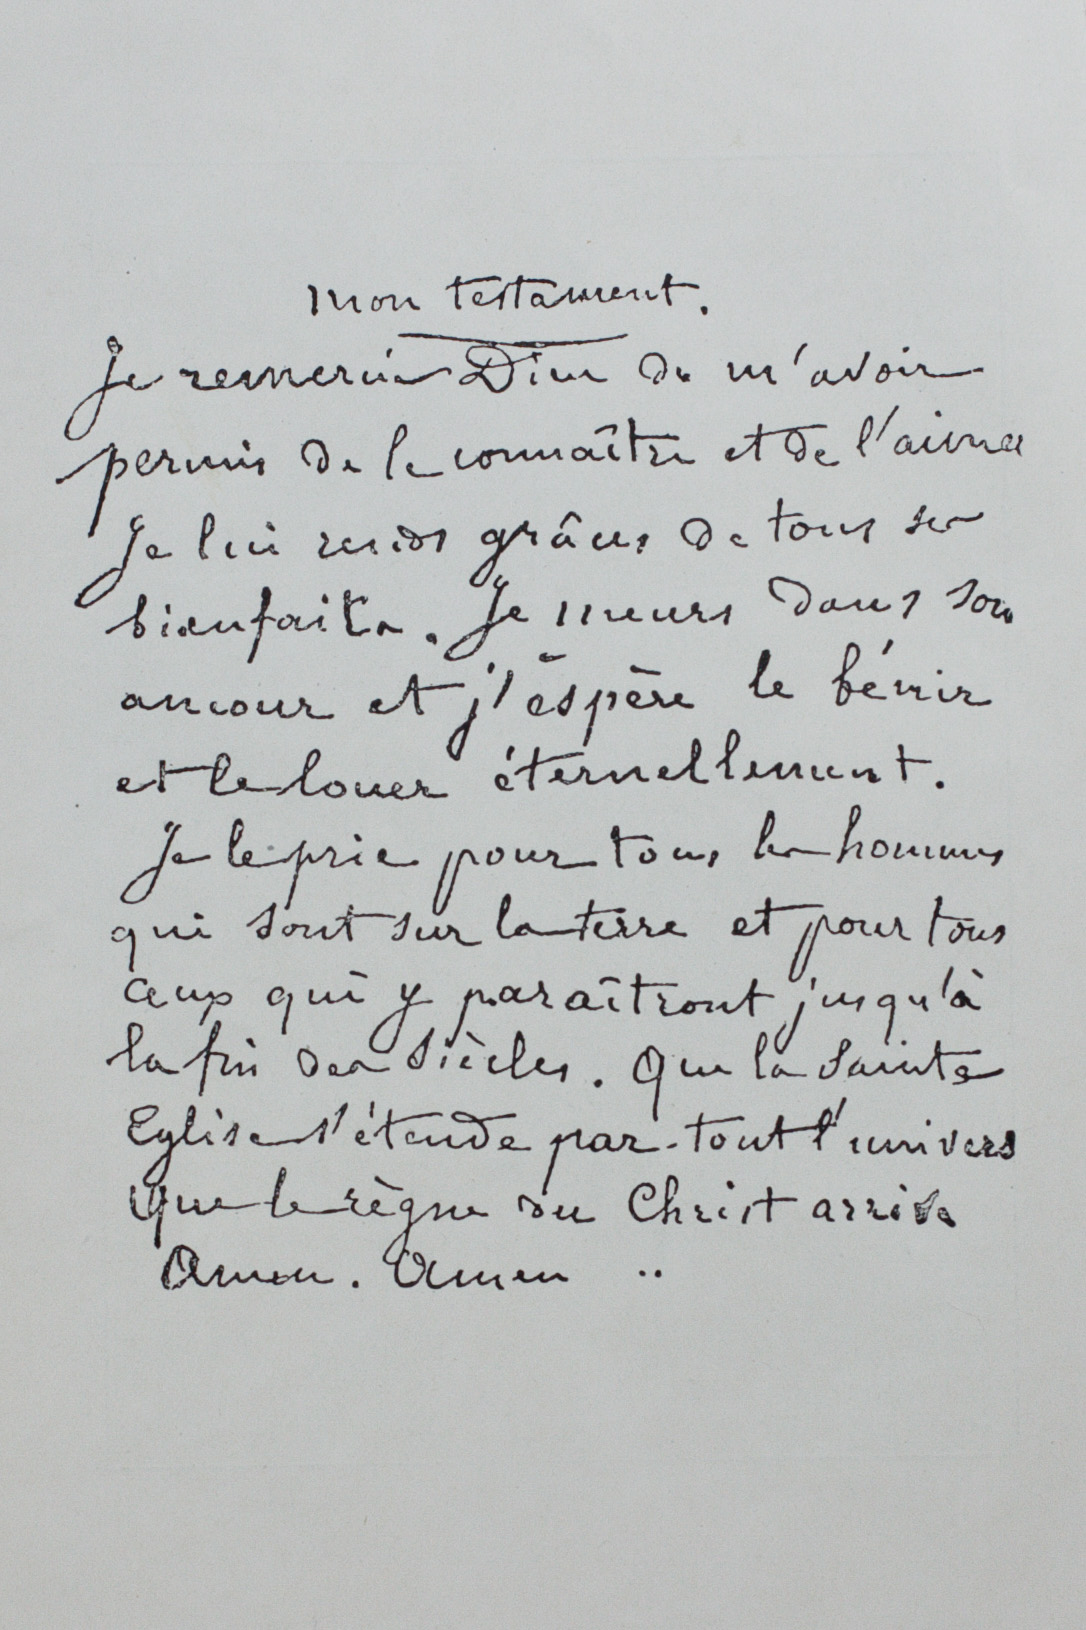 Mon testament.
Je remercie Dieu de m'avoir
permis de le connaître et de l'aimer
Je lui rends grâces de tous ses
bienfaits. Je meurs dans son
amour et j'éspère le bénir
et le louer éternellement.
Je le prie pour tous les hommes
qui sont sur la terre et pour tous
ceux qui y paraîtront jusqu'à
la fin des siècles. Que la Sainte
Eglise s'étende par-tout l'univers
Que le règne du Christ arrive
Amen. Amen ..